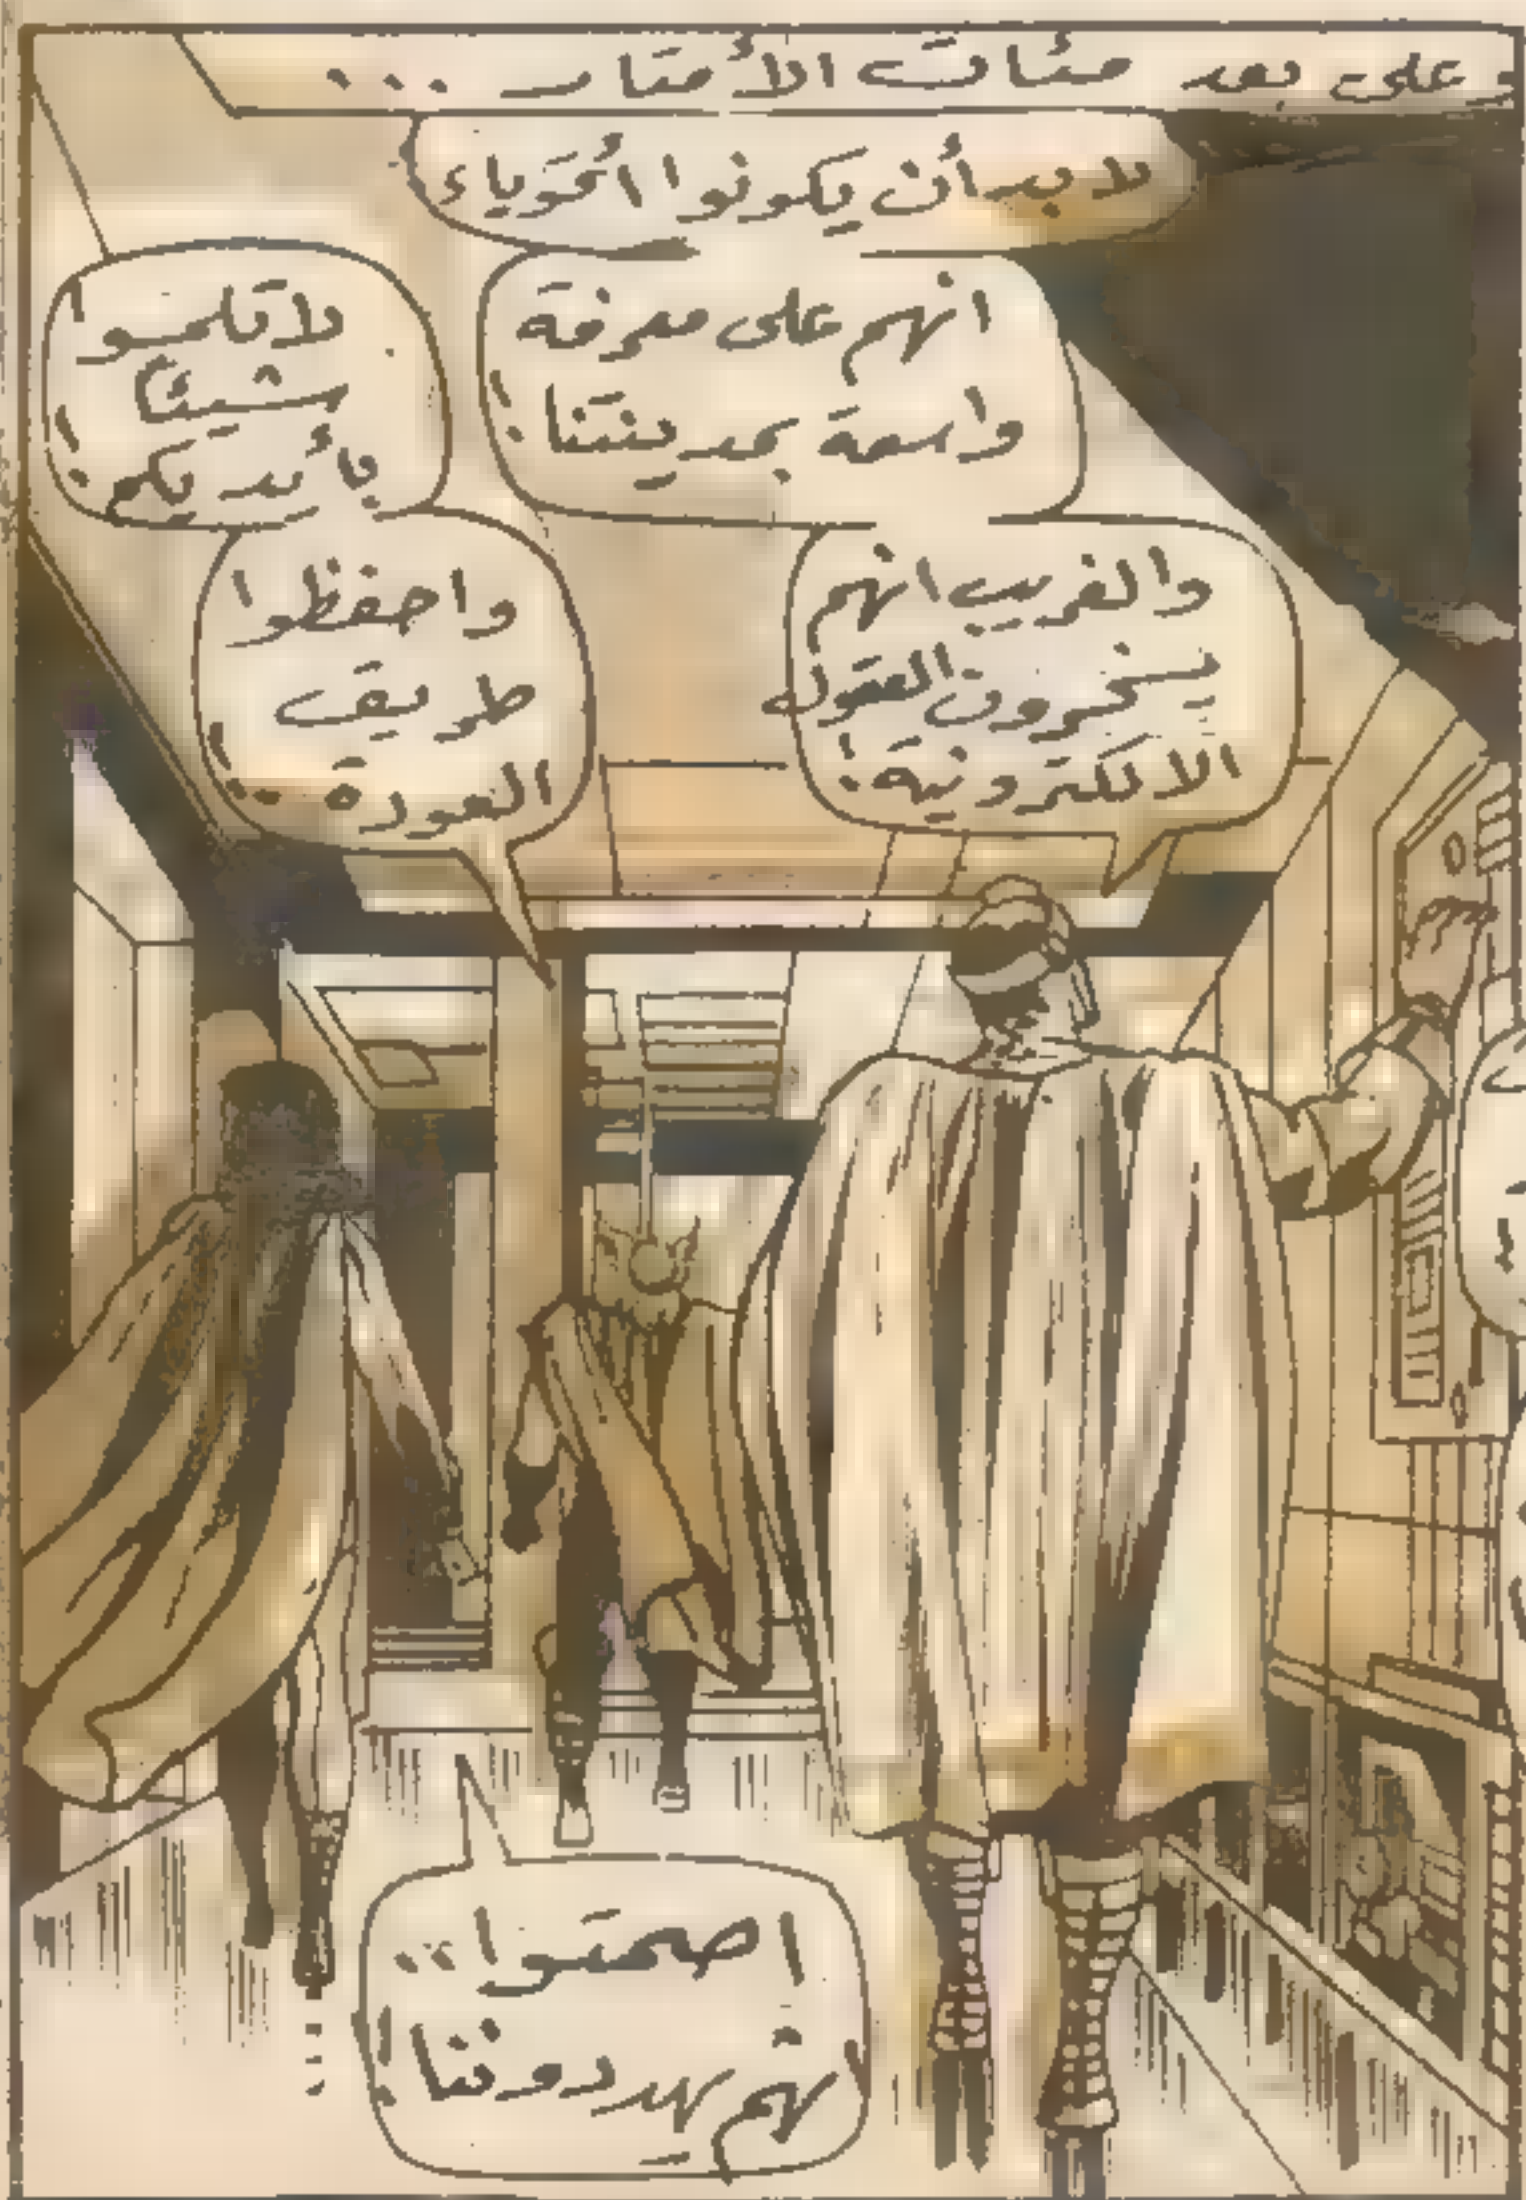 وعلى بعد مئات الأمتار ...
لا بد أن يكونوا أقوياء
انهم على معرفة
واسعة بمدينتنا!
والغريب انهم
يسخرون العقول
الالكترونية!
لا تلمسوا
شيئاً
بأيديكم!
واحفظوا
طريق
العودة ..!
اصمتوا..
انهم يهددوننا!